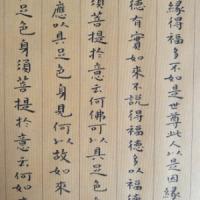 緣得福多不如是世尊此人以是因緣
德有實如來不說得福德多以福德
須菩提於意云何佛可以具足色
應以具足色身見何以故如來
足色身須菩提於意云何如